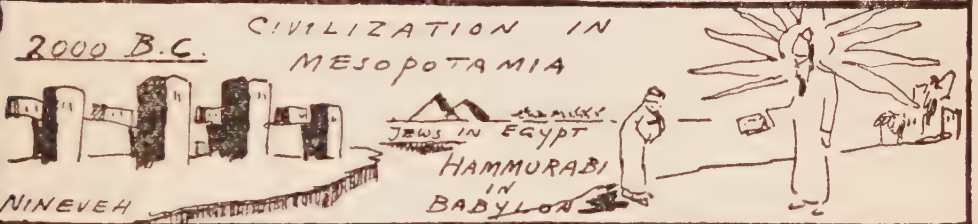 2000 B.C.
CIVILIZATION IN
MESOPOTAMIA
JEWS IN EGYPT
HAMMURABI
IN
BABYLON
NINEVEH